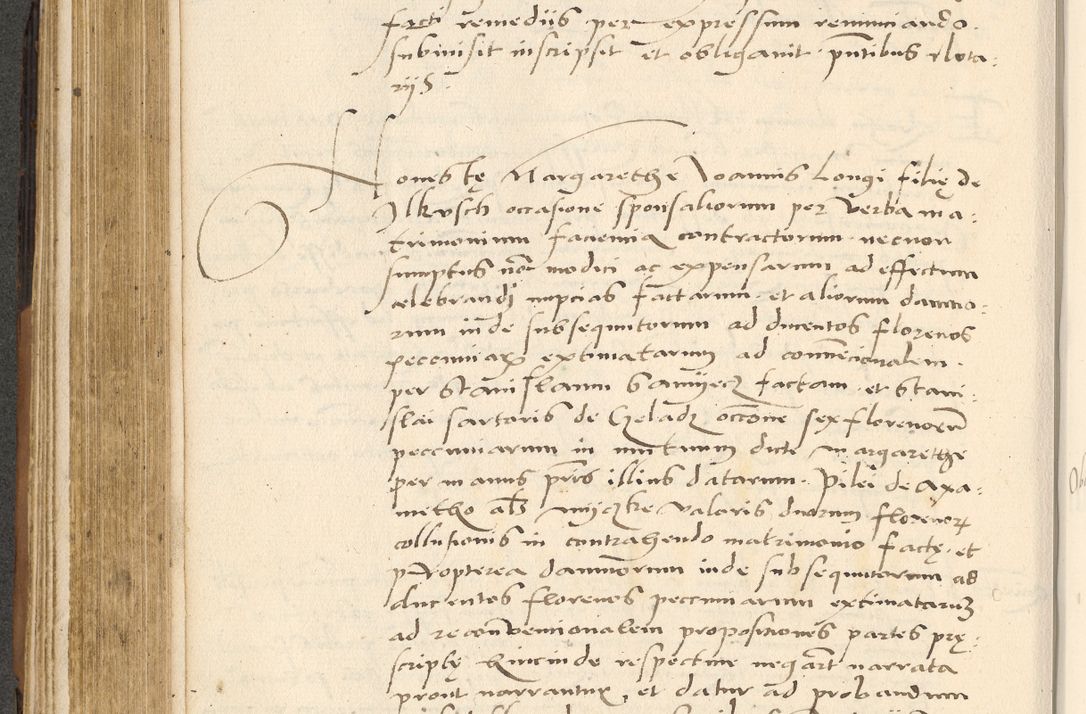 facti remediis per expressum renunciando.
subiuisit inscripsit et obligauit pñtibus Nota:
rijs.
Honestę Margarethe Joannis Longi filię de
Ilkusch occasione sponsaliorum per verba ma:
trimonium faciencia contractorum necnon
sumptus non modici ac expensarum ad effectum
celebrandi nupcias factarum et aliorum damno:
rum inde subsequutorum ad ducentos florenos
pecuniar extimatarum ad conuencionalem.
per Stanislaum factam et Stani:
slai sartoris de Czeladz occone sex florenorũ
peccuniarum in mutuum dicte Margarethe
per manus prris illius datarum. Pilei de Axa:
metho als Valoris duorum florenor
collusionis in contrahendo matrimonio factę. et
propterea damnorum inde subsequutorum ad
ducentos florenos peccuniarum extimatarum
ad reconuencionalem propositiones partes prę:
scriptę hincinde respectiue negant narrata
prout narrantur, et datur ad probandum